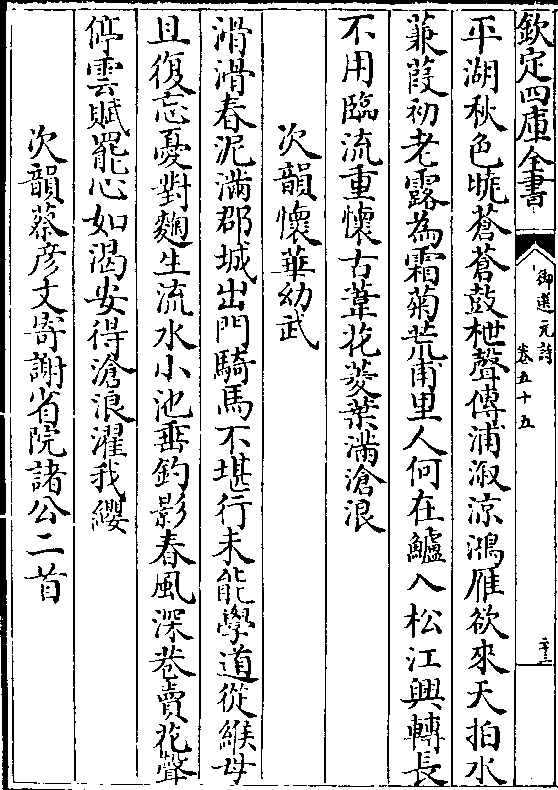 欽定四庫全書
御選元詩
卷五十五
平湖秋色曉蒼蒼鼓枻聲傳浦溆涼鴻雁欲來天拍水
蒹葭初老露為霜菊荒甫里人何在鱸入松江興轉長
不用臨流重懷古葦花菱葉滿滄浪
次韻懷華幼武
滑滑春泥滿郡城出門騎馬不堪行未能學道從緱母
且復忘憂對麴生流水小池垂釣影春風深巷賣花聲
停雲賦罷心如渴安得滄浪濯我纓
次韻蔡彦文寄謝省院諸公二首